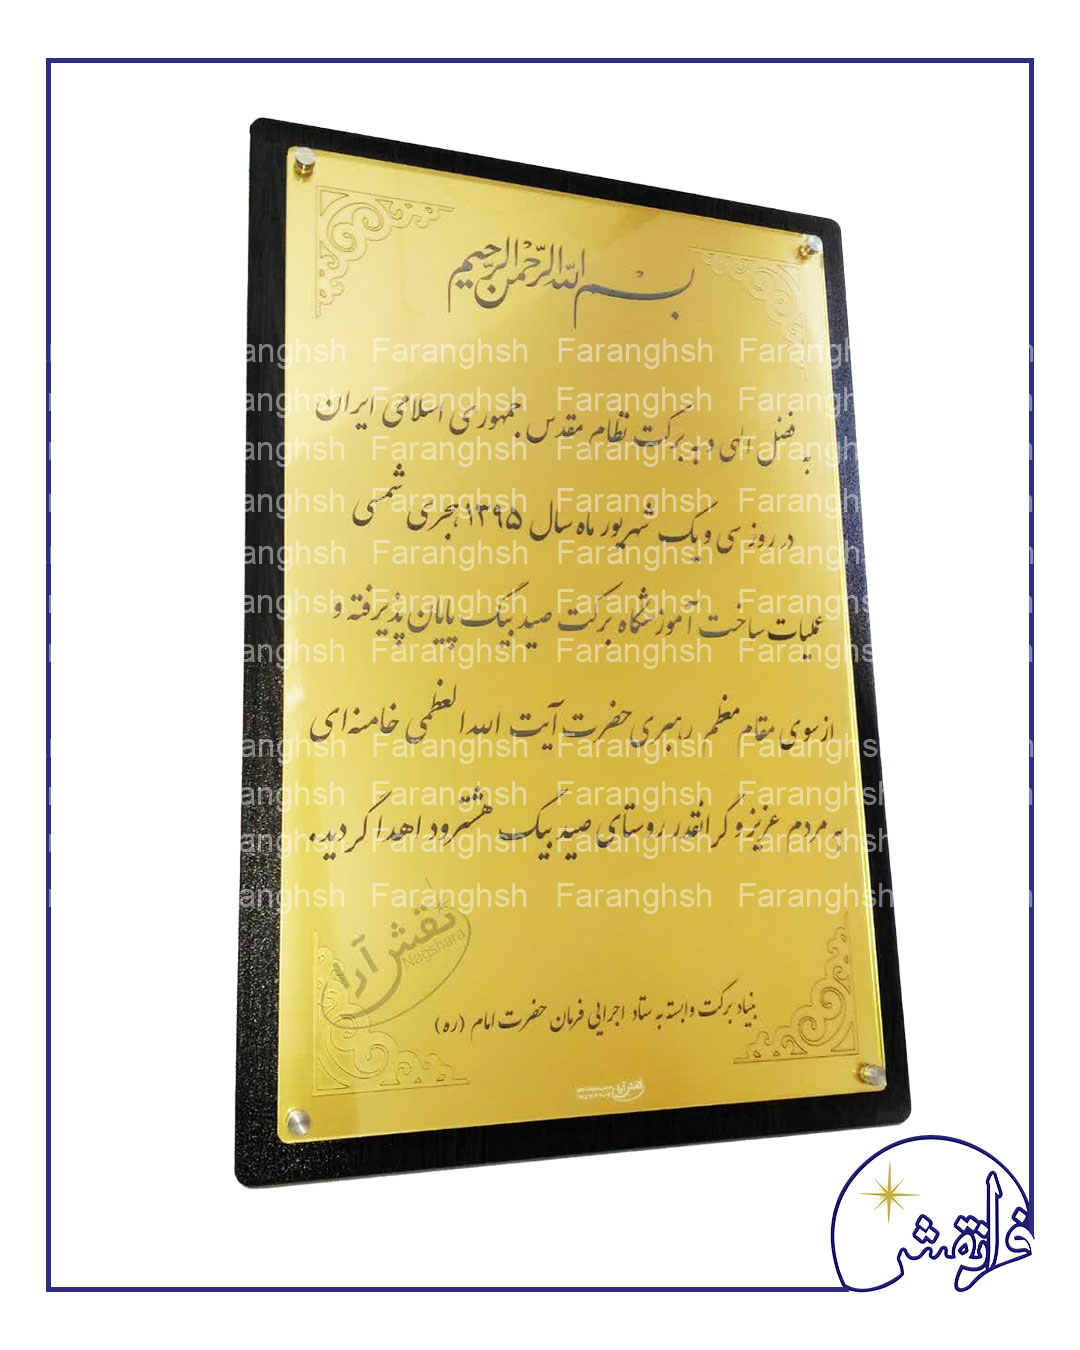 بسم الله الرحمن الرحیم
به فضل الهی و به برکت نظام مقدس جمهوری اسلامی ایران
در روز سی و یک شهریور ماه سال ۱۳۹۵ هجری شمسی
عملیات ساخت آموزشگاه برکت صید بیگ پایان پذیرفته و
از سوی مقام معظم رهبری حضرت آیت الله العظمی خامنه‌ای
به مردم عزیز و گرانقدر روستای صید بیگ هشترود اهدا گردید.
نقش آرا
Nagshara
بنیاد برکت وابسته به ستاد اجرایی فرمان حضرت امام (ره)
نقش آرا
فرانقش
Faranghsh Faranghsh Faranghsh Faranghsh